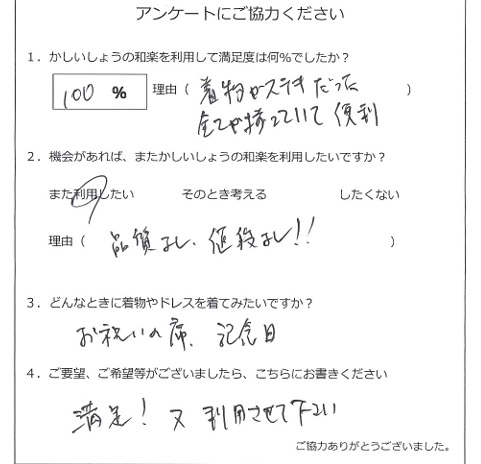 アンケートにご協力ください
1．かしいしょうの和楽を利用して満足度は何%でしたか？
100 % 理由（ 着物がステキだった ）
全てが揃っていて便利
2．機会があれば、またかしいしょうの和楽を利用したいですか？
また利用したい そのとき考える したくない
理由（ 品質よし、値段よし!! ）
3．どんなときに着物やドレスを着てみたいですか？
お祝いの席、記念日
4．ご要望、ご希望等がございましたら、こちらにお書きください
満足! 又 利用させて下さい
ご協力ありがとうございました。